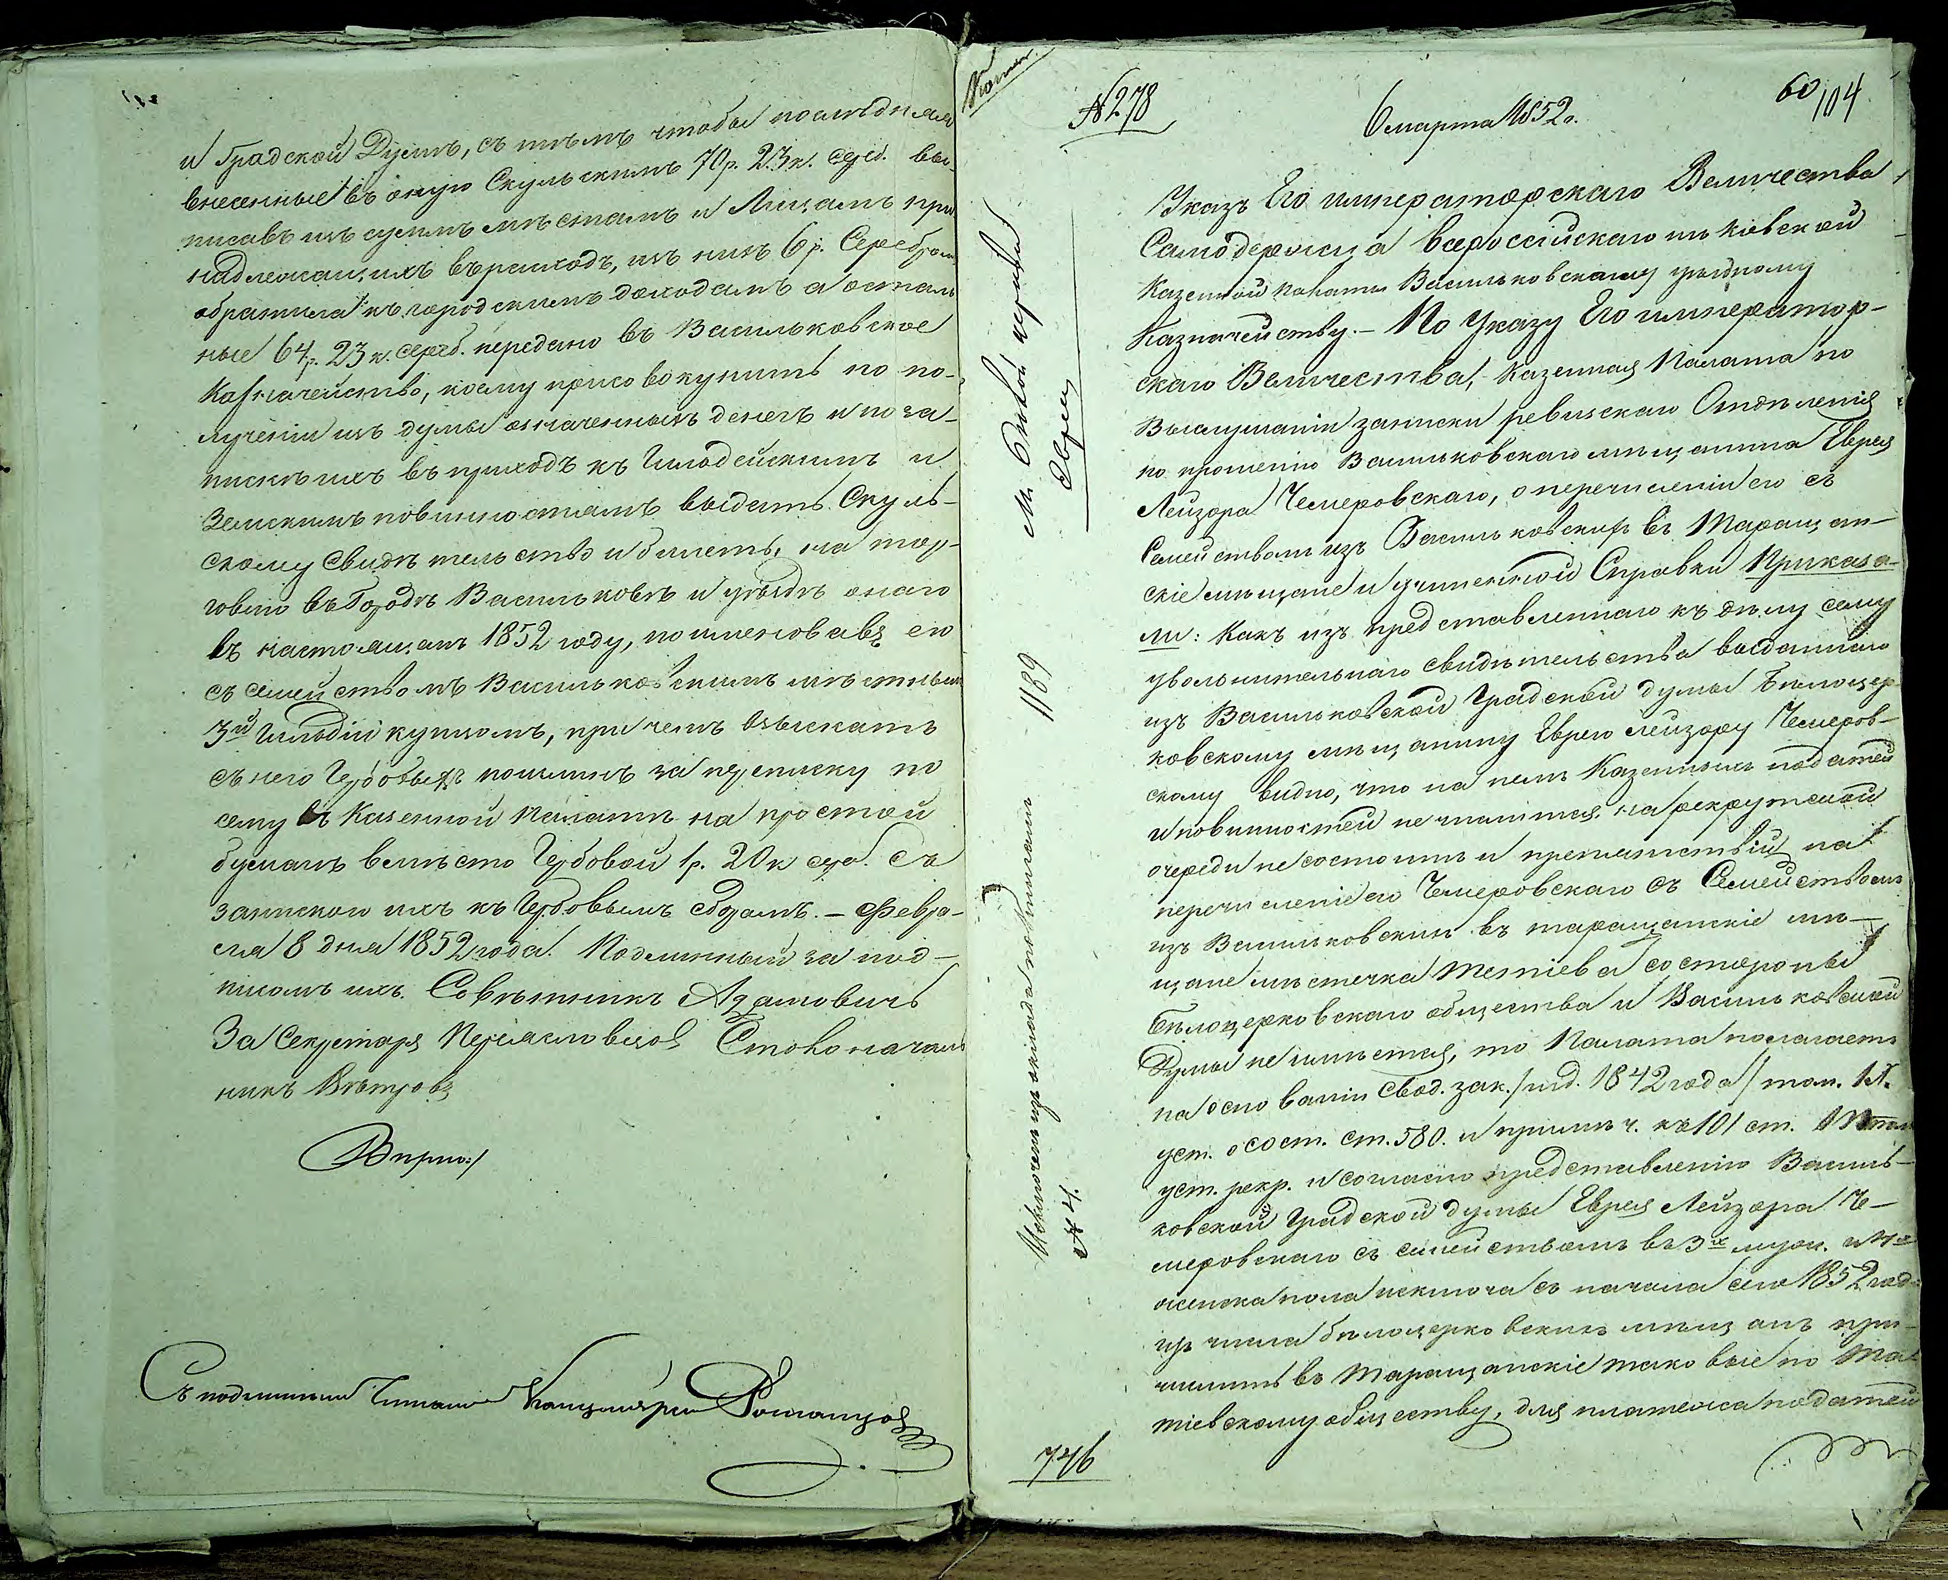 и Градской Думѣ, съ тѣмъ чтобы послѣдняя
внесенные въ оную Скульскимъ 70 р. 23 к. сереб. вы-
писавъ изъ суммъ мѣстамъ и Лицамъ при
надлежащихъ въ расходъ, изъ нихъ 6 р. Серебром
обратила къ городскимъ доходамъ а осталь
ные 64 р. 23 к. сереб. передано въ Васильковское
Казначейство, коему присовокупить по по-
лученіи изъ думы означенныхъ денегъ и по за-
пискѣ ихъ въ приходъ къ Гильдейскимъ и
Земскимъ повинностямъ выдать Скуль-
скому Свидѣтельство и билетъ, на тор-
говлю въ Городѣ Васильковѣ и уѣздѣ онаго
въ настоящемъ 1852 году, поименовавъ его
съ семействомъ Васильковскимъ мѣстнымъ
3й Гильдіи купцомъ, при чемъ Взыскать
съ него Гербовыхъ пошлинъ за переписку по
сему въ Казенной Палатѣ на простой
бумагѣ вмѣсто Гербовой 1 р. 20 к сереб. съ
запискою ихъ къ Гербовымъ сборамъ. – Февра-
ля 8 дня 1852 года. Подлинный за под-
писомъ ихъ. Совѣтникъ Адамовичъ
За Секретаря Переясловцов Столоначаль
никъ Вѣтровъ
Вѣрно:/
Съ подлиннымъ Читалъ Канцеляріи Романцов
№ 278
6 марта 1852 г.
60
104
Указъ Его императорскаго Величества
Самодержца всероссійскаго изъ Кіевской
Казенной палаты Васильковскому уѣздному
Казначейству. – По Указу Его император-
скаго Величества, Казенная Палата по
Выслушаніи записки ревизскаго Отдѣленія
по прошенію Васильковскаго мѣщанина Еврея
Лейзора Чемеровскаго, о перечисленіи его съ
Семействомъ изъ Васильковскихъ въ Таращан-
скіе мѣщане и учиненной Справки Приказа-
ли: Какъ изъ представленнаго къ дѣлу сему
увольнительнаго свидѣтельства выданнаго
изъ Васильковской Градской думы Бѣлоцер-
ковскому мѣщанину Еврею Лейзору Чемеров-
скому видно, что на немъ Казенныхъ податей
и повинностей не числится, на рекрутской
очереди не состоитъ и препятствій на
перечисленіе его Чемеровскаго съ Семействомъ
изъ Васильковскихъ въ таращанскіе мѣ-
щане мѣстечка Тетіева со стороны
Бѣлоцерковскаго общества и Васильковской
Думы не имѣется, то Палата полагаетъ
на основаніи Свод. зак. /изд. 1842 года/ том. IX.
уст. о сост. ст. 580. и примѣч. къ 101 ст. IV том
уст. рекр. и согласно представленію Василь-
ковской Градской думы Еврея Лейзора Че-
меровскаго съ семействомъ въ 3х муж. и
женска пола исключа съ начала сего 1852 года
изъ числа бѣлоцерковскихъ мѣщанъ при-
числить въ Таращанскіе таковые по Те-
тіевскому обществу, для платежа податей
М. Бѣлой церкви
Евреи
1189
Исключенъ изъ оклада по книгамъ
№ 4.
746